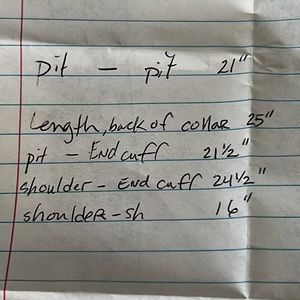 pit - pit 21"
Length, back of collar 25"
pit - End cuff 21 1/2"
shoulder - End cuff 24 1/2"
shoulder - sh 16"